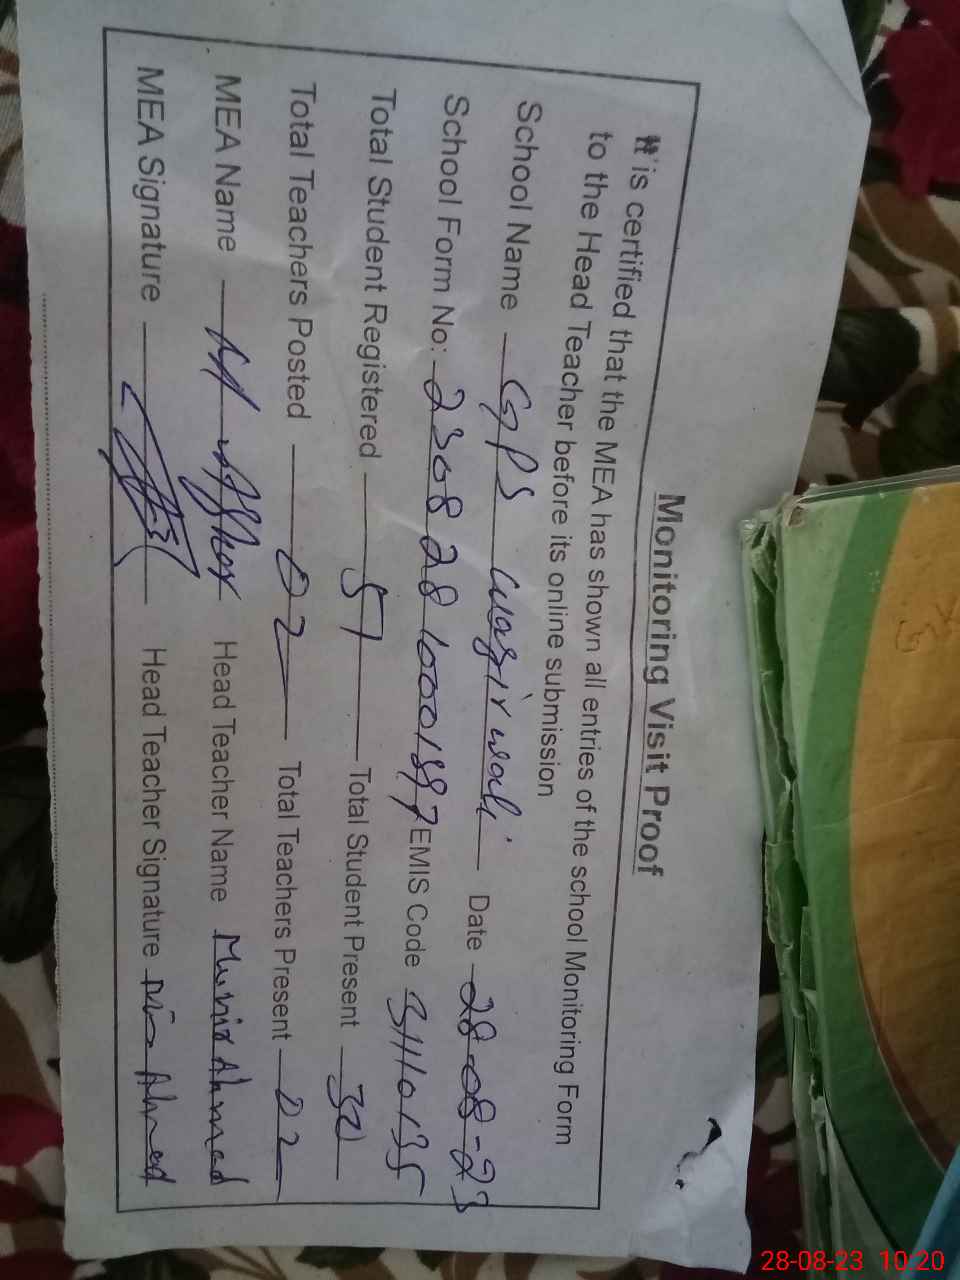 Monitoring Visit Proof
It is certified that the MEA has shown all entries of the school Monitoring Form
to the Head Teacher before its online submission
School Name GPS wazir wali Date 28-08-23
School Form No: 230828 1000 EMIS Code 31110135
Total Student Registered 57 Total Student Present
Total Teachers Posted 02 Total Teachers Present 02
MEA Name M Head Teacher Name Munir Ahmad
MEA Signature Head Teacher Signature Ahmad
28-08-23 10:20